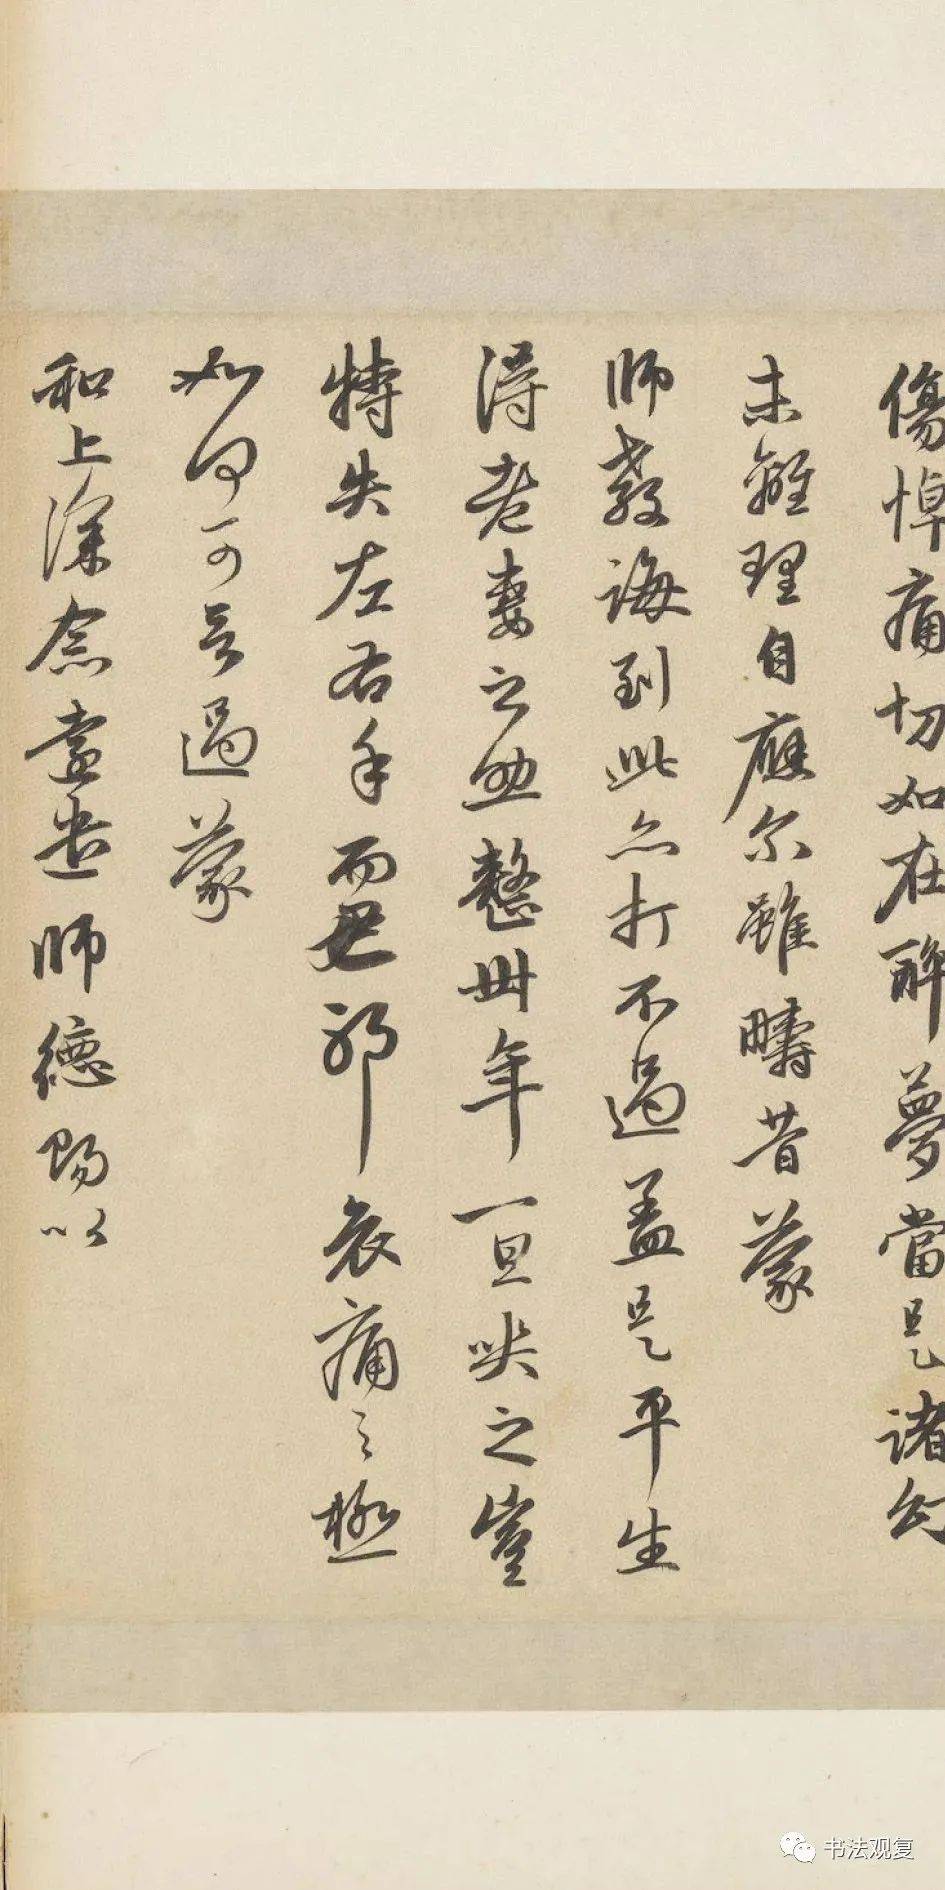 傷悼痛切如在醉夢當是諸幻
未離理自應尔雖疇昔蒙
師教誨到此亦打不過蓋是平生
得老妻之助整卅年一旦哭之豈
特失左右手而已耶哀痛之極
如何可言過蒙
和上深念遠遣師德賜以
书法观复